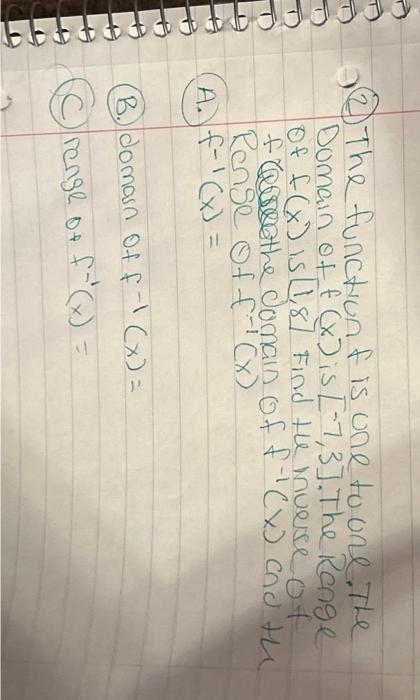 ② The function f is one to one. The
Domain of f(x) is [-7,3]. The Range
of f(x) is [1,8] Find the inverse of
f the domain of f⁻¹(x) and the
Range of f⁻¹(x)
A. f⁻¹(x) =
B. domain of f⁻¹(x) =
C range of f⁻¹(x) =